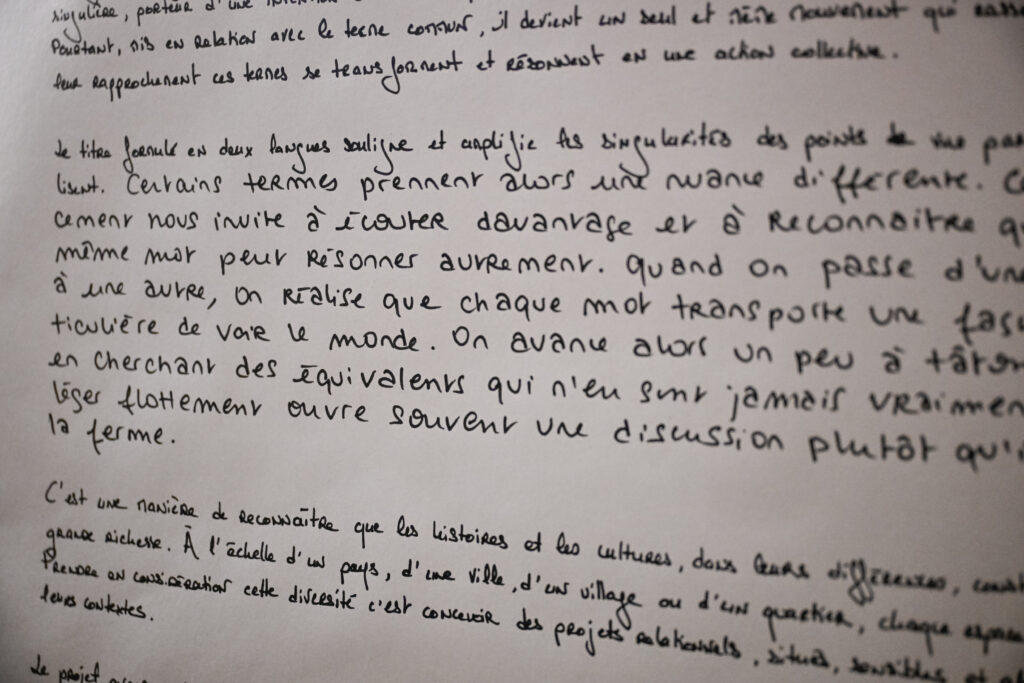 singulière, porteur d'une intention
Pourtant, mis en relation avec le terme commun, il devient un seul et même mouvement qui rasse
leur rapprochement ces termes se transforment et résonnent en une action collective.
Le titre formulé en deux langues souligne et amplifie les singularités des points de vue
lisent. Certains termes prennent alors une nuance différente. C
cement nous invite à écouter davantage et à reconnaitre qu
même mot peut résonner autrement. Quand on passe d'une
à une autre, on réalise que chaque mot transporte une faço
ticulière de voir le monde. On avance alors un peu à tâton
en cherchant des équivalents qui n'en sont jamais vraimen
léger flottement ouvre souvent une discussion plutôt qu'i
la ferme.
C'est une manière de reconnaître que les histoires et les cultures, dans leurs différences, const
grande richesse. À l'échelle d'un pays, d'une ville, d'un village ou d'un quartier, chaque espace
Prendre en considération cette diversité c'est concevoir des projets relationnels, situés, sensibles et
leurs contextes.
Le projet